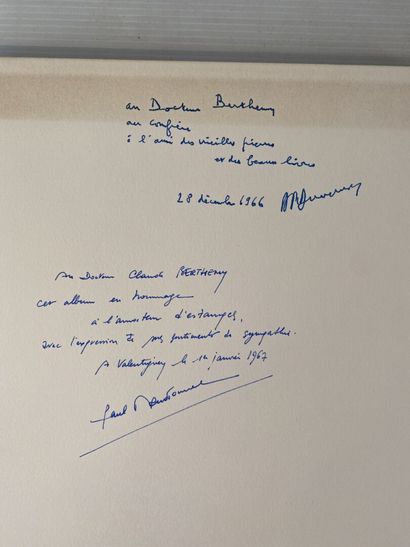 au Docteur Berthemy
au confrère
à l'ami des vieilles pierres
et des beaux livres
28 décembre 1966
Au Docteur Claude BERTHEMY
cet album en hommage
à l'amateur d'estampes,
avec l'expression de mes sentiments de sympathie.
A Valentigney le 12 janvier 1967
Paul